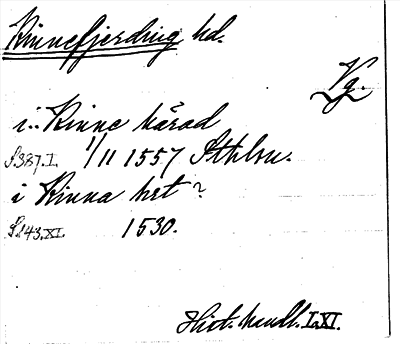 Kinnefjerding hd.
Vg.
i.. Kinne härad
S. 387. I. 1/11 1557 Sthlm.
i Kinna hrt ?
S. 143. XI. 1530.
Hist. handl. I. XI.